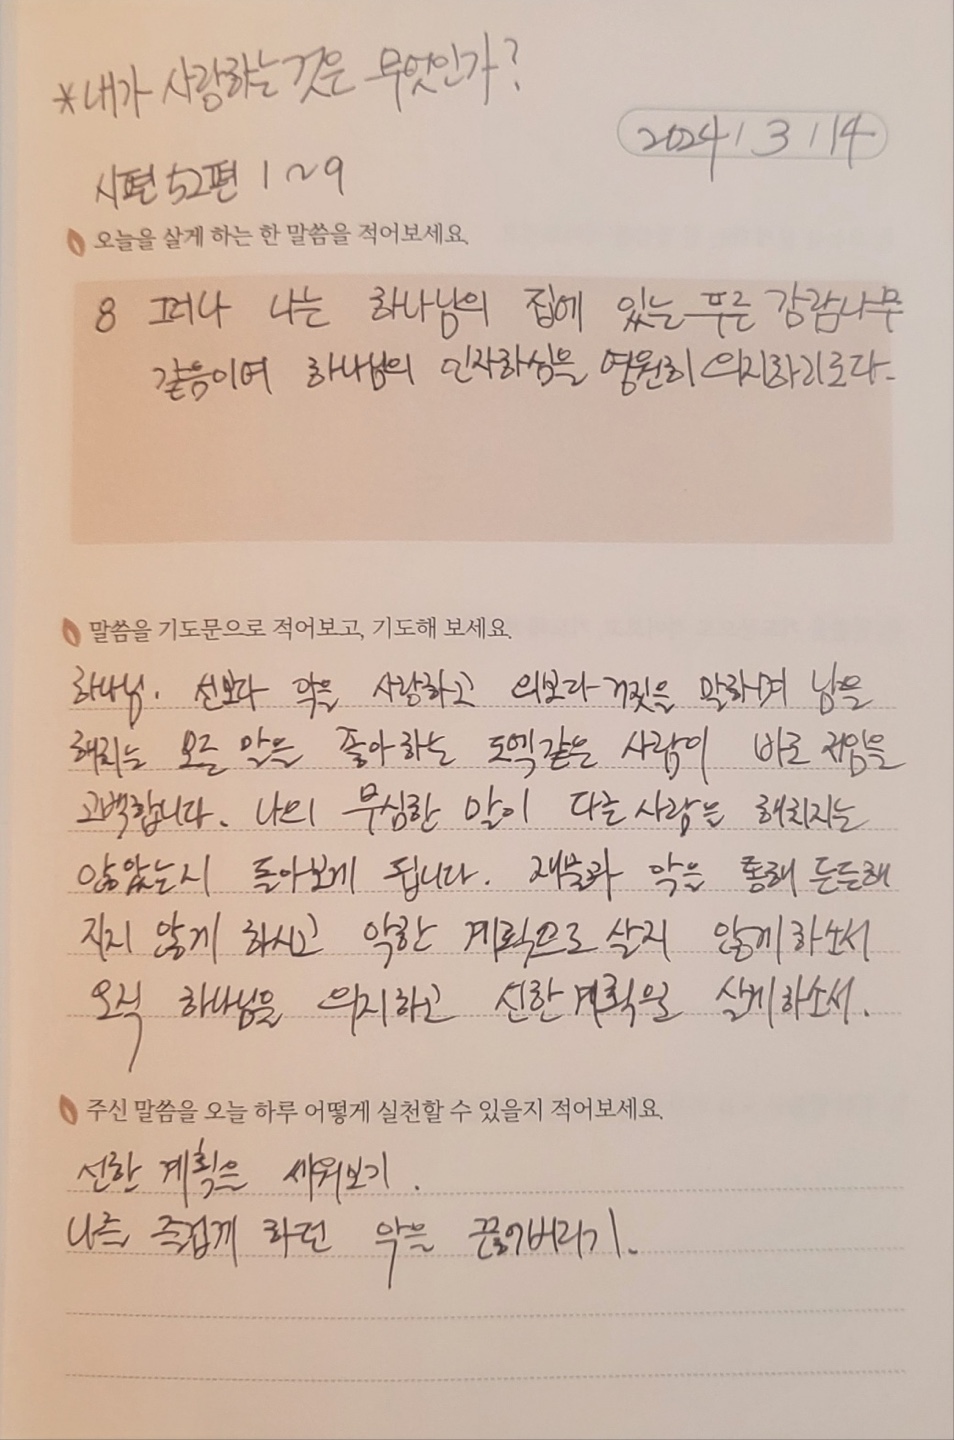 *내가 사랑하는 것은 무엇인가?
2024 / 3 / 14
시편 52편 1~9
오늘을 살게 하는 한 말씀을 적어보세요.
8 그러나 나는 하나님의 집에 있는 푸른 감람나무
같음이여 하나님의 인자하심을 영원히 의지하리로다.
말씀을 기도문으로 적어보고, 기도해 보세요.
하나님. 선보다 악을 사랑하고 의보다 거짓을 말하며 남을
해치는 모든 말을 좋아하는 도엑같은 사람이 바로 저임을
고백합니다. 나의 무심한 말이 다른 사람은 해치지는
않았는지 돌아보게 됩니다. 재물과 악을 통해 든든해
지지 않게 하시고 악한 계획으로 살지 않게 하소서
오직 하나님을 의지하고 선한 계획으로 살게 하소서.
주신 말씀을 오늘 하루 어떻게 실천할 수 있을지 적어보세요.
선한 계획을 세워보기.
나를 즐겁게 하던 악을 끊어버리기.